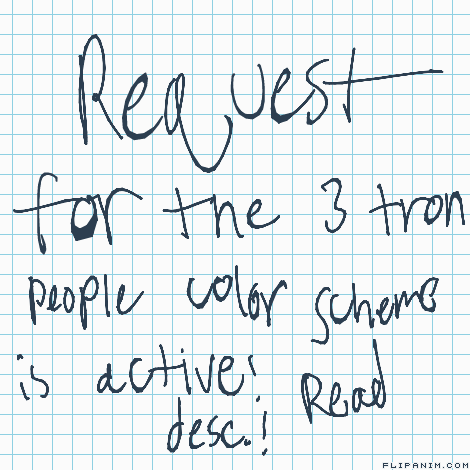 Request
for the 3 tron
people color scheme
is active! Read
desc.!
FLIPANIM.COM